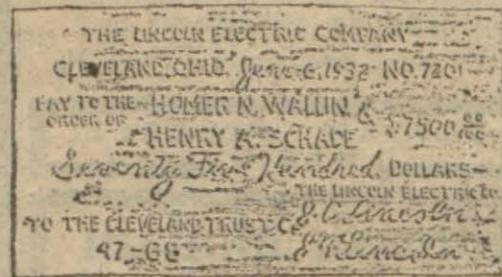 THE LINCOLN ELECTRIC COMPANY
CLEVELAND, OHIO, June 6, 1932 NO. 7201
PAY TO THE ORDER OF HOMER N. WALLIN & HENRY A. SCHADE $7500 00/100
Seventy Five Hundred DOLLARS
THE LINCOLN ELECTRIC Co
TO THE CLEVELAND TRUST Co. J. C. Lincoln
47-68 J. F. Lincoln